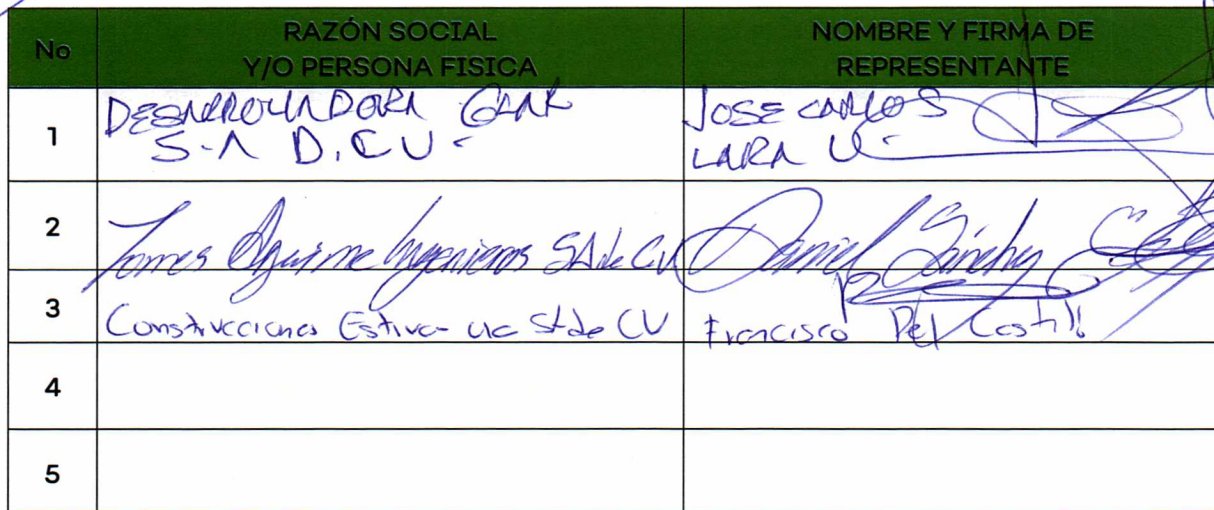 No
RAZÓN SOCIAL
Y/O PERSONA FISICA
NOMBRE Y FIRMA DE
REPRESENTANTE
1
DESARROLLADORA GLAR
S.A D.C.V.
JOSE CARLOS
LARA V.
2
Torres Aguirre Ingenieros SA de CV
Daniel Sánchez
3
Construcciones SA de CV
Francisco Del Castillo
4
5